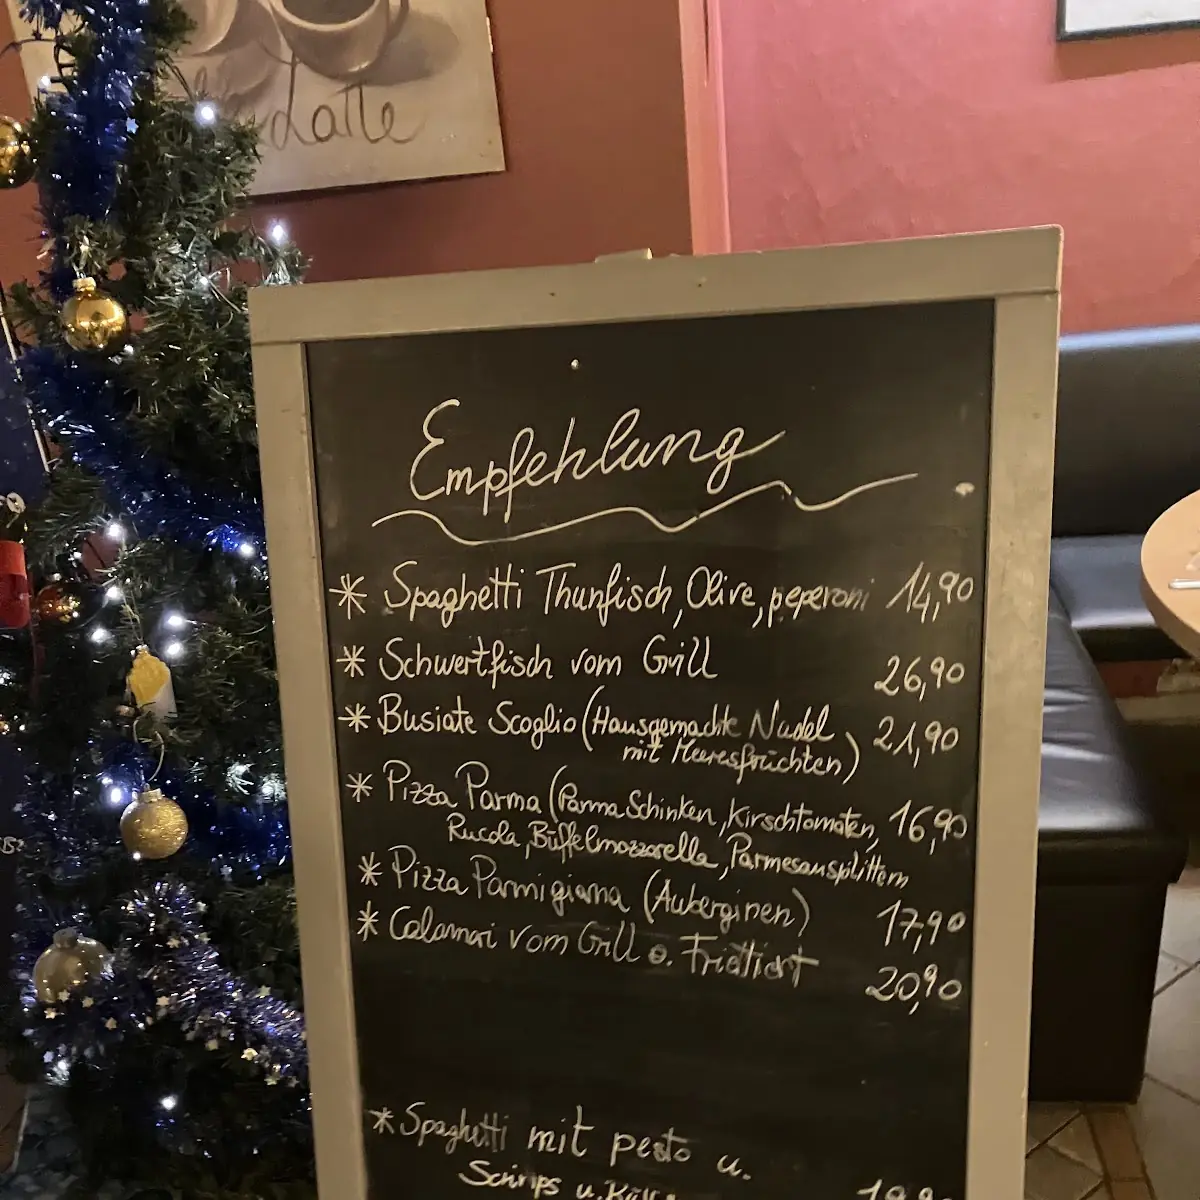 Latte
Empfehlung
* Spaghetti Thunfisch, Olive, peperoni 14,90
* Schwertfisch vom Grill 26,90
* Busiate Scoglio (Hausgemachte Nudel 21,90
mit Meeresfrüchten)
* Pizza Parma (Parma Schinken, Kirschtomaten, 16,90
Rucola, Büffelmozzarella, Parmesansplittern
* Pizza Parmigiana (Auberginen) 17,90
* Calamari vom Grill o. Friettiert 20,90
* Spaghetti mit pesto u.
u.